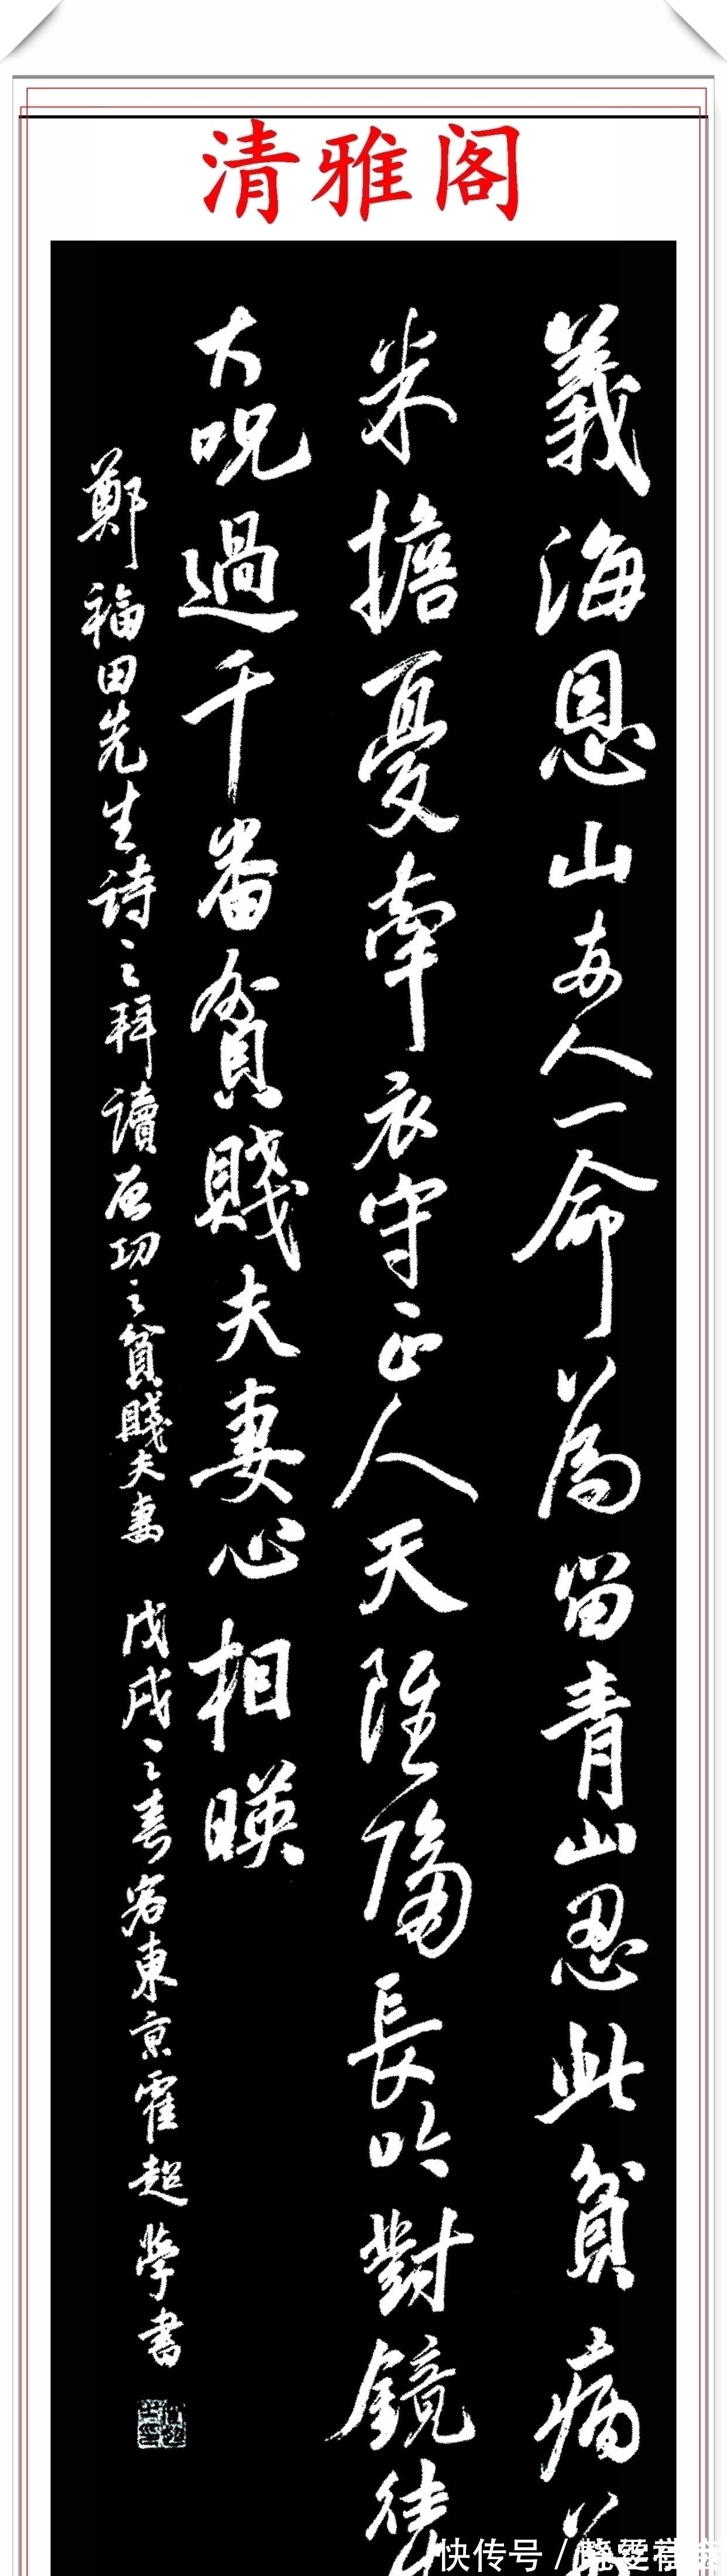 清雅阁
義海恩山人一命為留青山忍此貧病
米擔憂牽衣守正人天隔長吟對鏡
大呪過千番貧賤夫妻心相映
鄭福田先生詩之拜讀启功之貧賤夫妻 戊戌之春客東京霍超學書
快传号 /